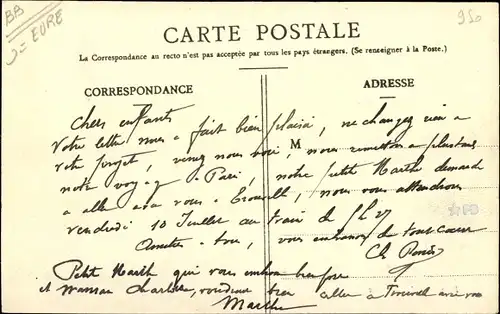 BB
= EURE
950
CARTE POSTALE
La Correspondance au recto n'est pas acceptée par tous les pays étrangers. (Se renseigner à la Poste.)
CORRESPONDANCE
ADRESSE
M
Chers enfants
Votre lettre nous a fait bien plaisir, ne changez rien a
vote projet, venez nous voir, nous remettons a plus tard
note voyag a Paris, notre petite Marthe demande
a aller avec vous a Trouville, nous vous attendrons
vendredi 10 Juillet au train de 5 L 27
tous, vous embrassons de tout coeur
Petite Marthe qui vous embrasse bien fort
et Maman Charlotte, voudrait bien aller a Trouville avec vous
Marthe